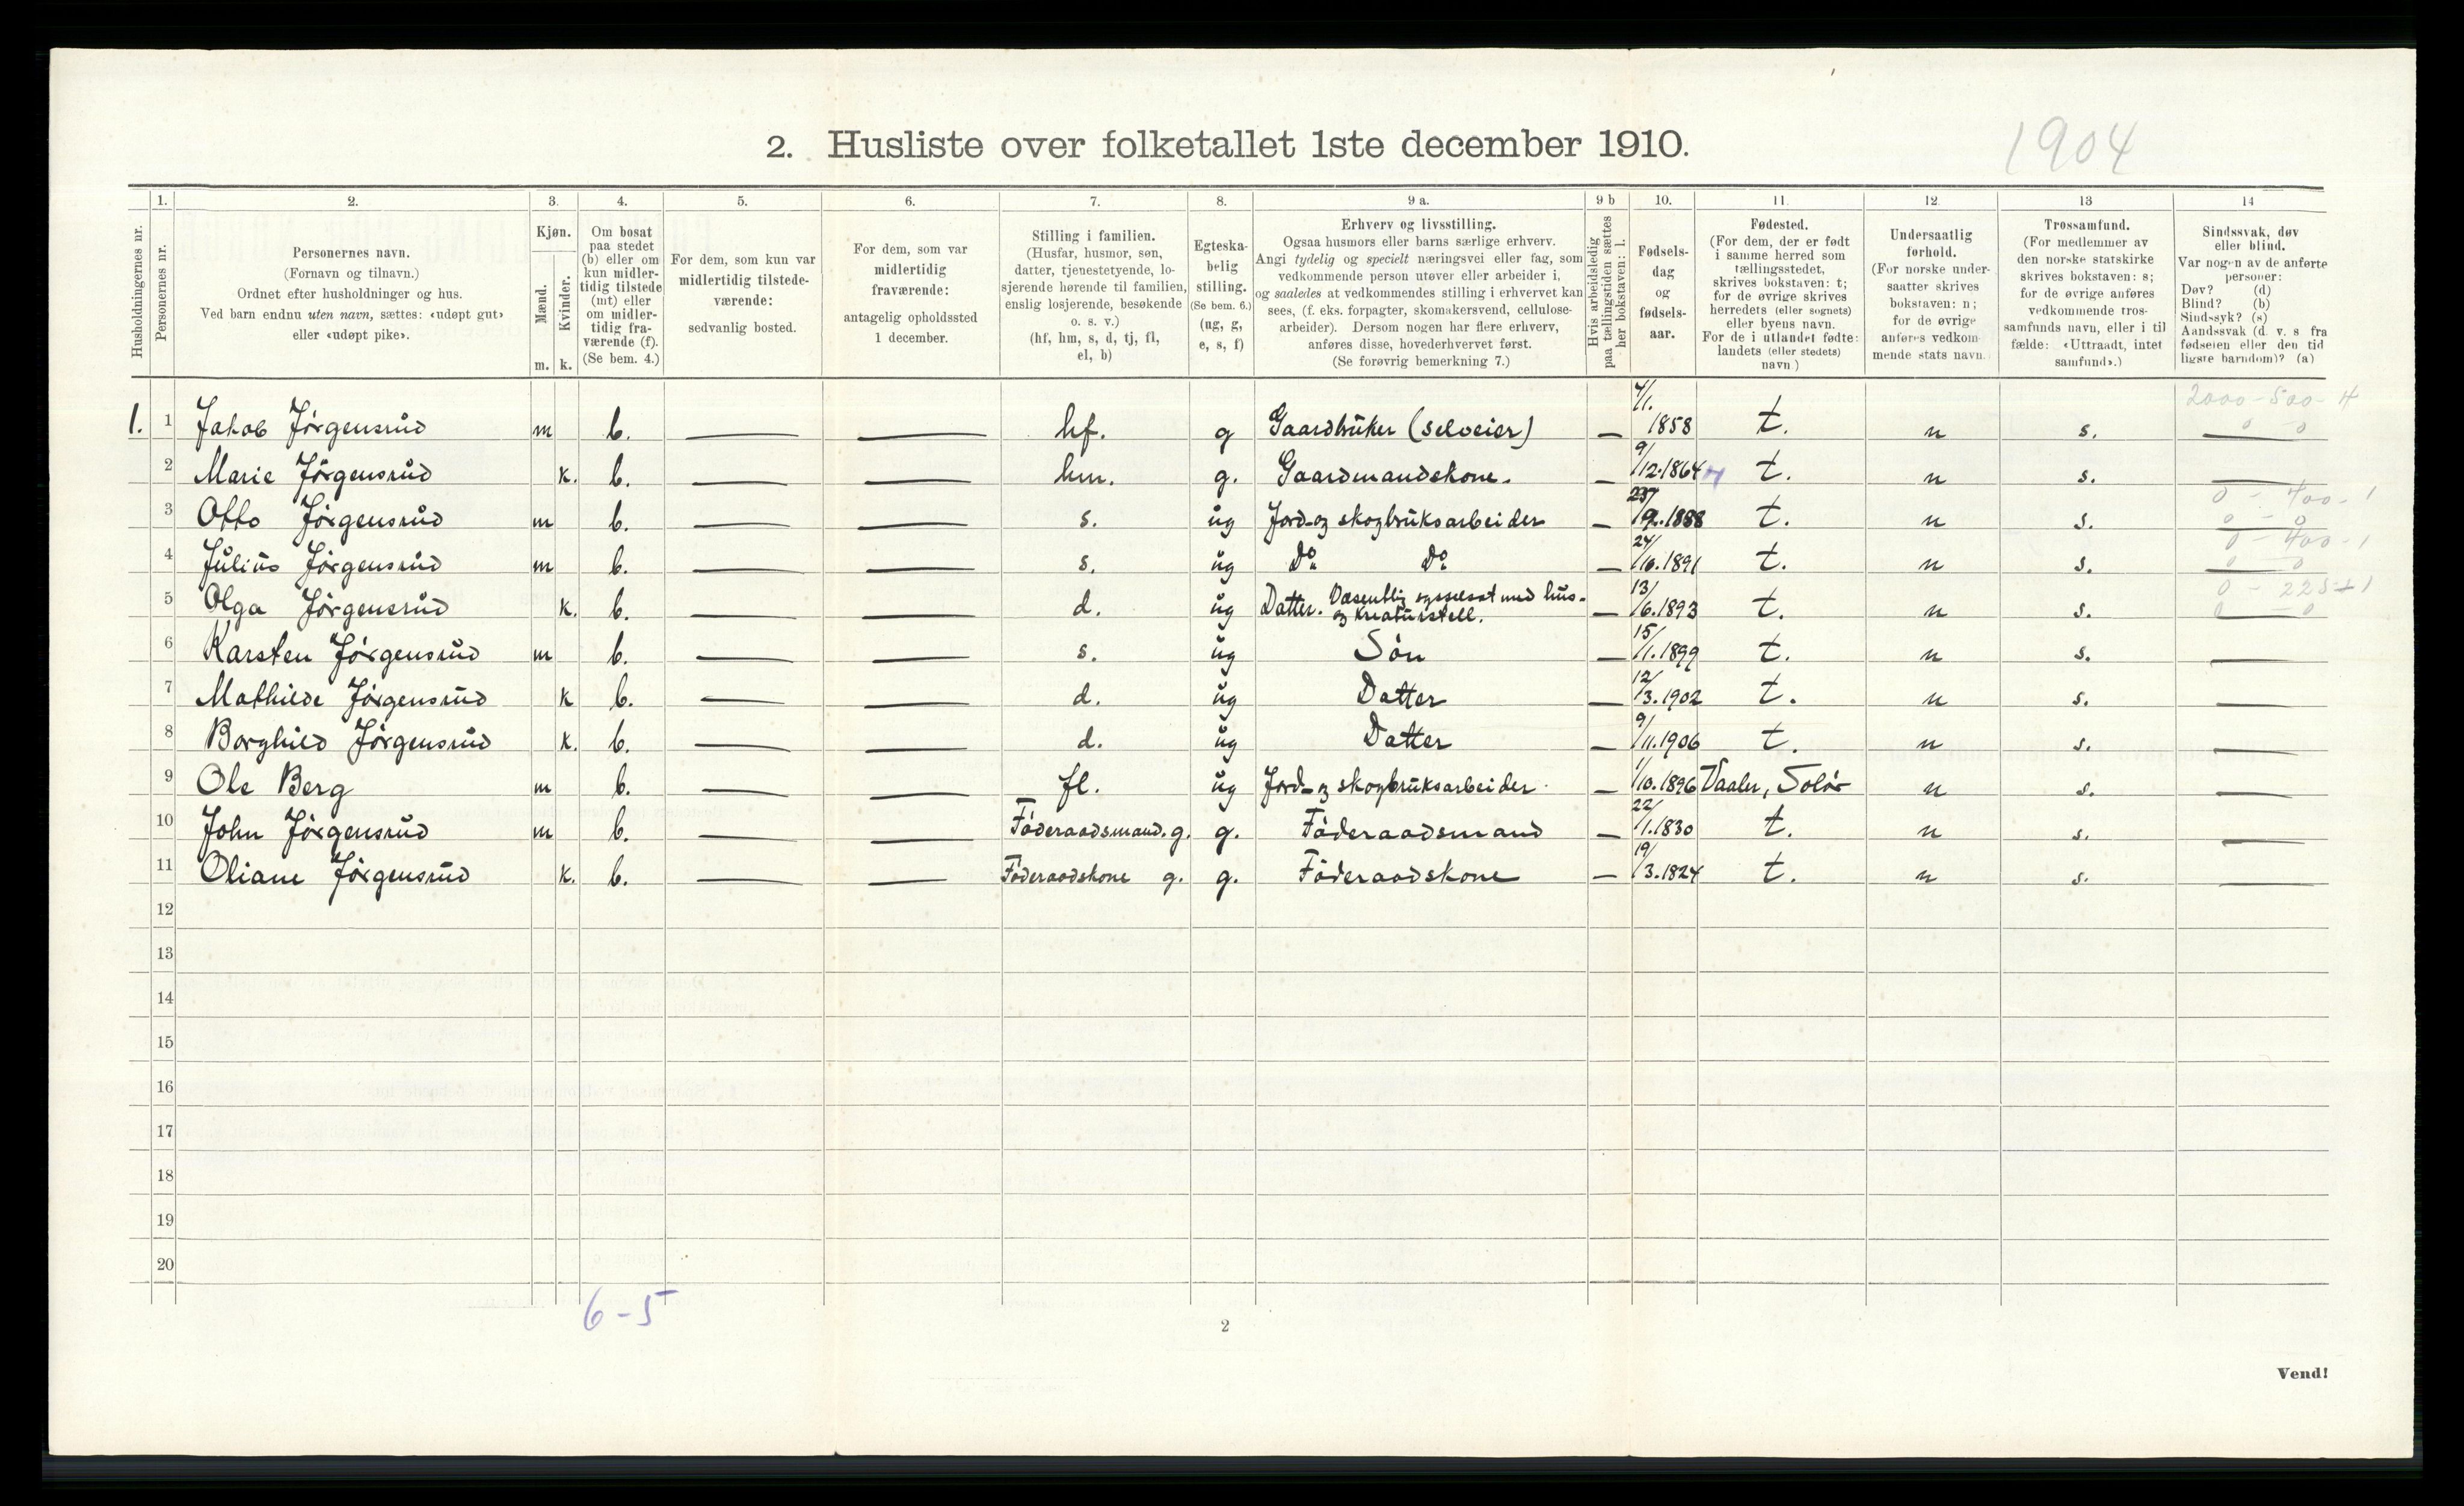 1904
2. Husliste over folketallet 1ste december 1910.
Husholdningernes nr.
1.
Personernes nr.
2.
Personernes navn.
(Fornavn og tilnavn.)
Ordnet efter husholdninger og hus.
Ved barn endnu uten navn, sættes: «udøpt gut»
eller «udøpt pike».
3.
Kjøn.
Mænd.
Kvinder.
m. k.
4.
Om bosat
paa stedet
(b) eller om
kun midler-
tidig tilstede
(mt) eller
om midler-
tidig fra-
værende (f).
(Se bem. 4.)
5.
For dem, som kun var
midlertidig tilstede-
værende:
sedvanlig bosted.
6.
For dem, som var
midlertidig
fraværende:
antagelig opholdssted
1 december.
7.
Stilling i familien.
(Husfar, husmor, søn,
datter, tjenestetyende, lo-
sjerende hørende til familien,
enslig losjerende, besøkende
o. s. v.)
(hf, hm, s, d, tj, fl,
el, b)
8.
Egteska-
belig
stilling.
(Se bem. 6.)
(ug, g,
e, s, f)
9 a.
Erhverv og livsstilling.
Ogsaa husmors eller barns særlige erhverv.
Angi tydelig og specielt næringsvei eller fag, som
vedkommende person utøver eller arbeider i,
og saaledes at vedkommendes stilling i erhvervet kan
sees, (f. eks. forpagter, skomakersvend, cellulose-
arbeider). Dersom nogen har flere erhverv,
anføres disse, hovederhvervet først.
(Se forøvrig bemerkning 7.)
9 b
Hvis arbeidsledig
paa tællingstiden sættes
her bokstaven: l.
10.
Fødsels-
dag
og
fødsels-
aar.
11.
Fødested.
(For dem, der er født
i samme herred som
tællingsstedet,
skrives bokstaven: t;
for de øvrige skrives
herredets (eller sognets)
eller byens navn.
For de i utlandet fødte:
landets (eller stedets)
navn.)
12.
Undersaatlig
forhold.
(For norske under-
saatter skrives
bokstaven: n;
for de øvrige
anføres vedkom-
mende stats navn.)
13
Trossamfund.
(For medlemmer av
den norske statskirke
skrives bokstaven: s;
for de øvrige anføres
vedkommende tros-
samfunds navn, eller i til
fælde: «Uttraadt, intet
samfund».)
14
Sindssvak, døv
eller blind.
Var nogen av de anførte
personer:
Døv? (d)
Blind? (b)
Sindssyk? (s)
Aandssvak (d. v. s. fra
fødselen eller den tid
ligste barndom)? (a)
2000 - 500 - 4
0 - 0
1. 1 Jakob Jörgensrud m b. — — hf. g Gaardbruker (selveier) — 4/11. 1858 t. n s. —
2 Marie Jörgensrud k. b. — — hm. g. Gaardmandskone. — 9/12.1864 t. n s. —
0 - 400 - 1
0 - 0
3 Otto Jörgensrud m b. — — s. ug Jord- og skogbruksarbeider — 23/9.1888 t. n s. —
0 - 400 - 1
0 - 0
4 Julius Jörgensrud m b. — — s. ug Do Do — 24/10.1891 t. n s. —
0 - 225 - 1
0 - 0
5 Olga Jörgensrud k. b. — — d. ug Datter. Væsentlig sysselsat med hus-
og kreaturstell. — 13/6.1893 t. n s.
6 Karsten Jörgensrud m b. — — s. ug Sön — 15/1.1899 t. n s. —
7 Mathilde Jörgensrud k b. — — d. ug Datter — 12/3.1902 t. n s. —
8 Borghild Jörgensrud k. b. — — d. ug Datter — 9/11.1906 t. n s. —
9 Ole Berg m b. — — fl. ug Jord- og skogbruksarbeider — 1/10.1896 Vaaler, Solör n s. —
10 John Jörgensrud m b. — — Föderaadsmand. g. g. Föderaadsmand — 22/1.1830 t. n s. —
11 Oliane Jörgensrud k. b. — — Föderaadskone g. g. Föderaadskone — 19/3.1824 t. n s. —
12
13
14
15
16
17
18
19
20
6 - 5
2
Vend!